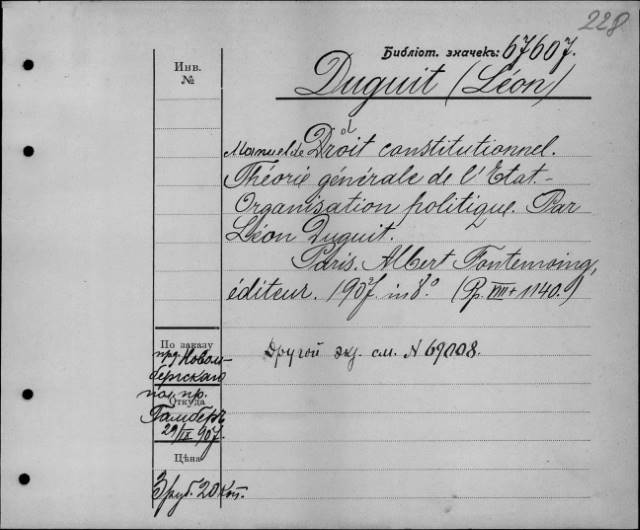 228
Библіот. значекъ: 67607.
Инв.
№
Duguit (Léon)
d
Manuel de Droit constitutionnel.
Théorie générale de l'Etat.-
Organisation politique. Par
Léon Duguit.
Paris. Albert Fontemoing,
éditeur. 1907. in 8.° (Pp. VIII + 1140.)
По заказу
прд. Новом-
бергскаго
Другой экз. см. N 69008.
пол. пр.
Откуда
Гамберъ
29/IX 907.
Цѣна
3 руб. 20 коп.